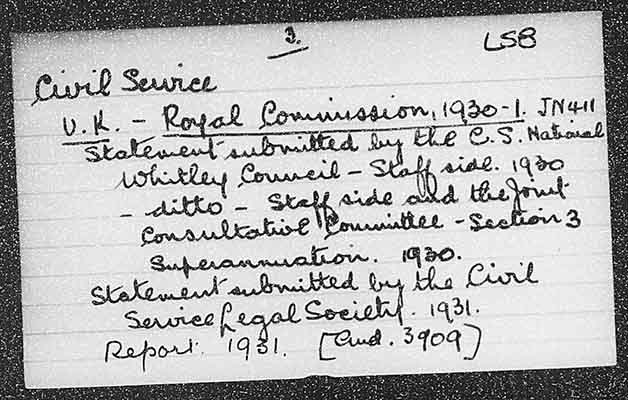 3.
LSB
Civil Service
U.K. - Royal Commission, 1930-1. JN411
Statement submitted by the C.S. National
Whitley Council - Staff side. 1930
- ditto - Staff side and the Joint
Consultative Committee - Section 3
Superannuation. 1930.
Statement submitted by the Civil
Service Legal Society. 1931.
Report. 1931. [Cmd. 3909]